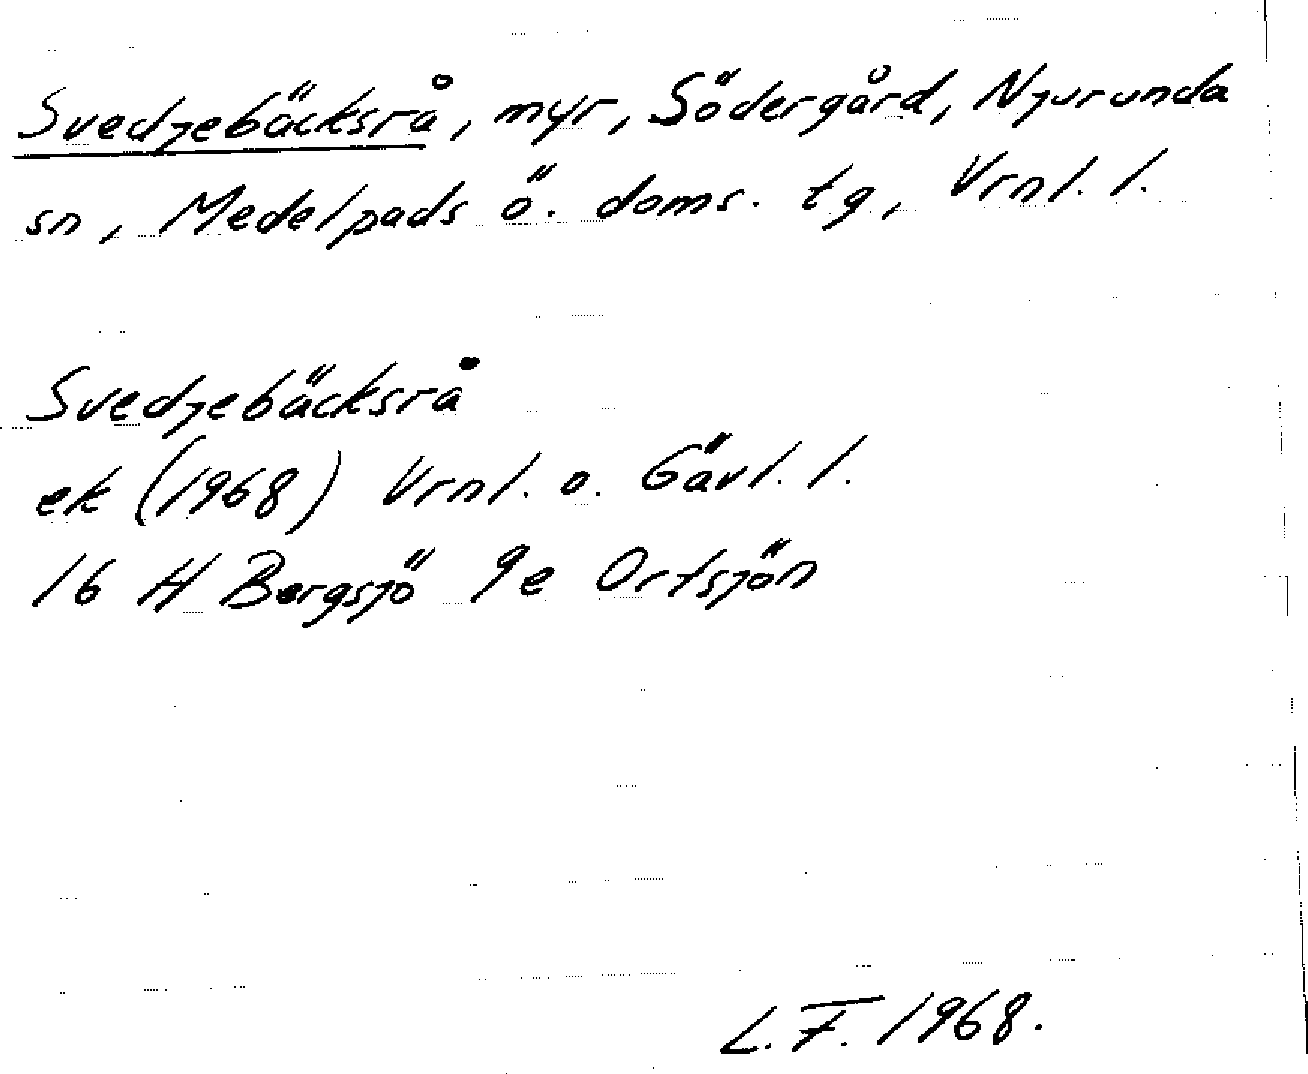 Svedjebäcksrå, myr, Södergård, Njurunda
sn, Medelpads ö. doms. tg, Vrnl. l.
Svedjebäcksrå
ek (1968) Vrnl. o. Gävl. l.
16 H Bergsjö 9e Ortsjön
L.F. 1968.